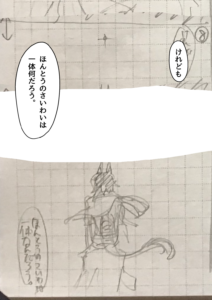 けれども
ほんとうのさいわいは
一体何だろう。
ほんとうのさいわいは
一体なんだろう。